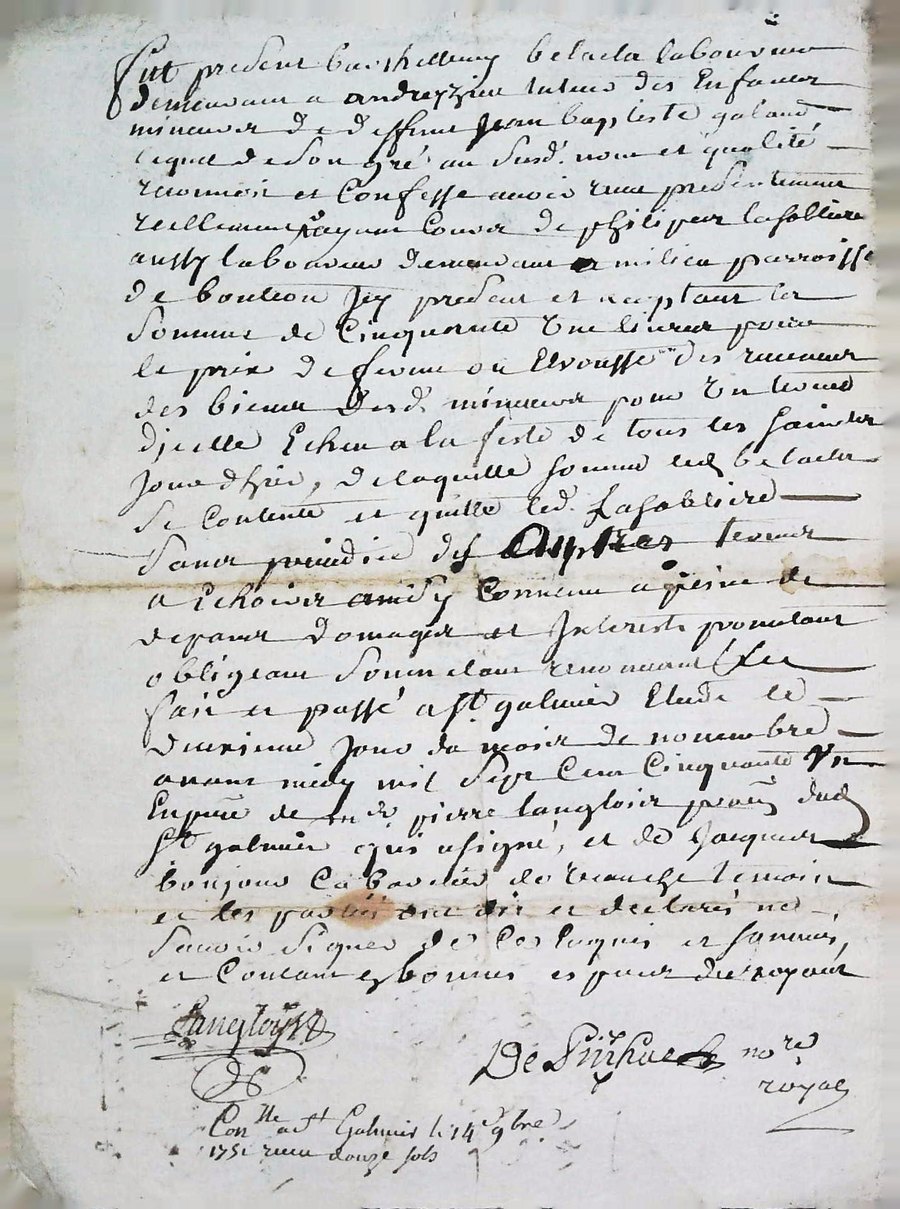 fut present barthellemy belacla laboureur
demeurant a andrezieu tuteur des Enfants
mineurs de deffunt Jean baptiste galand
lequel de son gré au susd. nom et qualité
reconnoit et Confesse avoir receu presentement
reellement Contant de philipes lafolliere
aussy laboureur demeurant a milieu parroisse
de bouteon Jcy present et acceptant la
somme de Cinquante Une livres pour
le prix de ferme ou des revenus
des biens desd. mineurs pour Un terme
dicelle Echeu a la feste de tous les saints
Jour d'hier, de laquelle somme led belacla
se contente et quitte led. Lafolliere
sans prejudice des Auptres termes
a Echoire ainsy Convenu a peine de
depans domages et Interests promettant
obligeant soumettant renonceant &ce
fait et passé a St. galmier Etude le
deuxieme jour du mois de novembre
avant midy mil sept Cent Cinquante Un
En pnce de me pierre langlois dud
St galmier qui a signé, et de Jacques
bonjour Cabaretier de temoins
et les parties ont dit et declarés ne
savoir signer de Ce Enquis et sommés,
et
Langlois
De no.re
royal
Con.lle a St Galmier le 14e 9bre
1751 receu douze sols